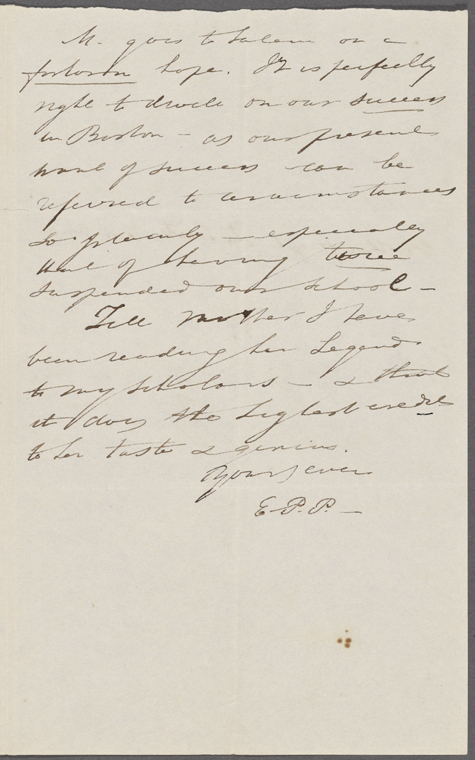 M. goes to Salem on a
forlorn hope. It is perfectly
right to dwell on our success
in Boston – as our present
want of success can be
referred to circumstances
so plainly – especially
that of having twice
suspended our school –
Tell Mother I have
been reading her Legend
to my scholars – & that
it does the highest credit
to her taste & genius.
Yours ever
E. P. P. –